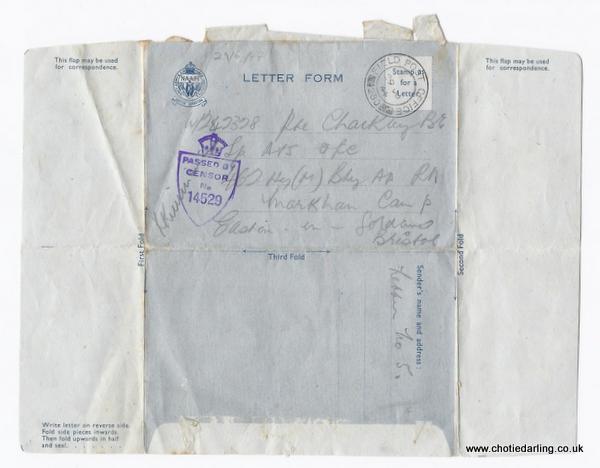 This flap may be used
for correspondence.
NAAFI
LETTER FORM
FIELD POST OFFICE
Stamp as
for a
Letter
This flap may be used
for correspondence.
Pte Charkay B E
PASSED BY
CENSOR
No
14529
Markham Camp
Easton - in - Gordano
Bristol
First Fold
Third Fold
Second Fold
Sender's name and address:
Letter No 5.
Write letter on reverse side.
Fold side pieces inwards.
Then fold upwards in half
and seal.
www.chotiedarling.co.uk